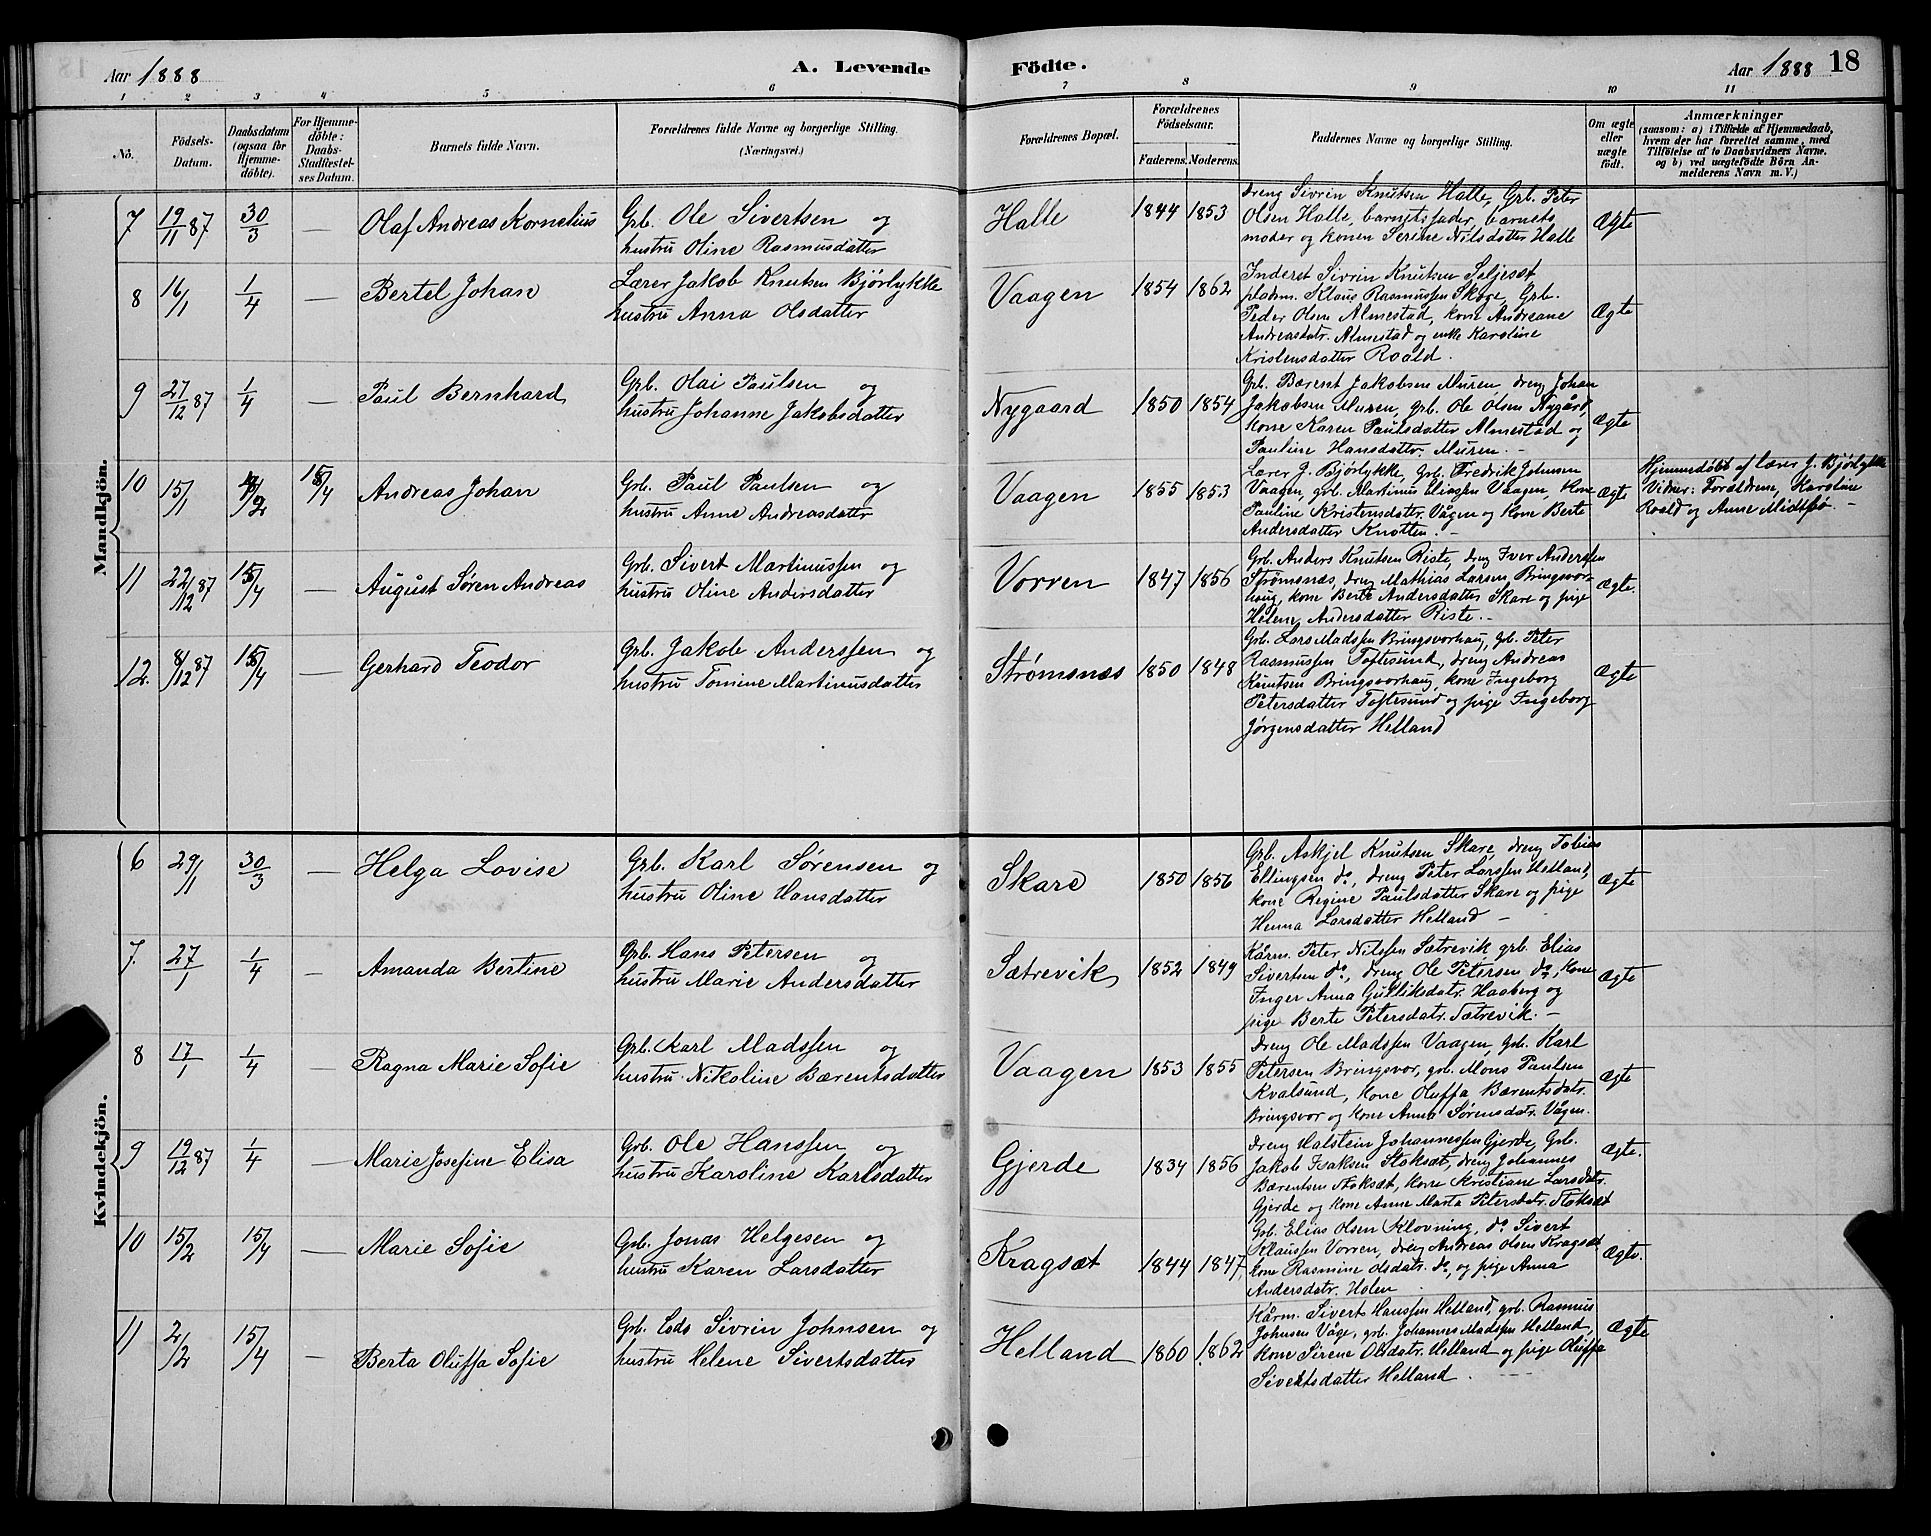 Aar 1888
A. Levende
Födte.
Aar 1888
18
1 2 3 4 5 6 7 8 9 10 11
No.
Födsels-
Datum.
Daabsdatum
(ogsaa for
Hjemme-
döbte).
For Hjemme-
döbte:
Daabs-
Stadfæstel-
ses Datum.
Barnets fulde Navn.
Forældrenes fulde Navne og borgerlige Stilling.
(Næringsvei.)
Forældrenes Bopæl.
Forældrenes
Födselsaar.
Faderens. Moderens.
Faddernes Navne og borgerlige Stilling.
Om ægte
eller
uægte
födt.
Anmærkninger
(saasom: a) i Tilfælde af Hjemmedaab,
hvem der har forrettet samme, med
Tilföielse af to Daabsvidners Navne,
og b) ved uægtefödte Börn An-
melderens Navn m. V.)
Mandkjön.
7 19/11 87 30/3 — Olaf Andreas Kornelius
Grb. Ole Sivertsen og
hustru Oline Rasmusdatter
Halle 1844 1853
dreng Sivrin Knutsen Halle, Grb. Peter
Olsen Halle, barnetsfader, barnets
moder og konen Serine Nilsdatter Halle
Ægte
8 16/1 1/4 — Bertel Johan
Lærer Jakob Knutsen Bjørlykke
hustru Anna Olsdatter
Vaagen 1854 1862
Inderst Sivrin Knutsen Seljesæt
pladsm. Klaus Rasmussen Skoge, Grb.
Peder Olsen Almestad, kone Andreane
Andreasdatr. Almestad og enke Karoline
Kristensdatter Roald.
Ægte
9 27/12 87 1/4 — Paul Bernhard
Grb. Olai Paulsen og
hustru Johanne Jakobsdatter
Nygaard 1850 1854
Grb. Bærent Jakobsen Muren dreng Johan
Jakobsen Muren, grb. Ole Olsen Nygård,
kone Karen Paulsdatter Almestad og
Pauline Hansdatter Muren. –
Ægte
10 15/1 /2 15/4 Andreas Johan
Grb. Paul Paulsen og
hustru Anne Andreasdatter
Vaagen 1855 1853
Lærer J. Bjørlykke, Grb. Fredrik Johnsen
Vaagen, grb. Martinus Eliassen Vaagen, kone
Pauline Kristensdatr. Vågen og kone Berte
Andersdatter Knotten. –
Ægte
Hjemmedøbt af lærer J. Bjørlykke
Vidner: Forældrene, Karoline
Roald og Anne Midtbø. –
11 22/12 87 15/4 — August Søren Andreas
Grb. Sivert Martinussen og
hustru Oline Andersdatter
Vorren 1847 1856
Grb. Anders Knutsen Riste, dreng Iver Anderssen
Strømsnæs, dreng Mathias Larsen Bringsvor-
haug, kone Berte Andersdatter Skare og pige
Helene Andersdatter Riste. –
Ægte.
12. 8/12 87 15/4 — Gerhard Teodor
Grb. Jakob Anderssen og
hustru Tomine Martinusdatter
Strømsnæs 1850 1848
Grb. Lars Madssen Bringsvorhaug, grb. Peter
Rasmussen Toftesund, dreng Andreas
Knutsen Bringsvorhaug, kone Ingeborg
Petersdatter Toftesund og pige Ingeborg
Jørgensdatter Helland
Ægte
Kvindekjön.
6 29/1 30/3 — Helga Lovise
Grb. Karl Sørensen og
hustru Oline Hansdatter
Skare 1850 1856
Grb. Askjel Knutsen Skare, dreng Tobias
Ellingsen do, dreng Peter Larssen Helland,
kone Regine Paulsdatter Skare og pige
Henna Larsdatter Helland –
Ægte
7. 27/1 1/4 — Amanda Bertine
Grb. Hans Petersen og
hustru Marie Andersdatter
Sætrevik 1852 1849
Kårm. Peter Nilssen Sætrevik, grb. Elias
Sivertsen do, dreng Ole Petersen do, kone
Inger Anna Gulliksdatr. Haaberg og
pige Berte Petersdatr. Sætrevik. –
Ægte
8 17/1 1/4 — Ragna Marie Sofie
Grb. Karl Madssen og
hustru Nikoline Bærentsdatter
Vaagen 1853 1855
dreng Ole Madssen Vaagen, grb. Karl
Petersen Bringsvor, grb. Mons Paulsen
Kvalsund, kone Oluffa Bærentsdatr.
Bringsvor og kone Anna Sørensdatr. Vågen.
Ægte
9 19/12 87 1/4 — Marie Josefine Elisa
Grb. Ole Hanssen og
hustru Karoline Karlsdatter
Gjerde 1834 1856
dreng Halstein Johannessen Gjerde, Grb.
Jakob Isaksen Stoksæt, dreng Johannes
Bærentsen Stoksæt, kone Kristiane Larsdatr.
Gjerde og kone Anne Marta Petersdatr. Stoksæt
Ægte.
10 15/2 15/4 — Marie Sofie
Grb. Jonas Helgesen og
hustru Karen Larsdatter
Kragsæt 1844 1847
Grb. Elias Olsen Klovning, do Sivert
Klaussen Vorren, dreng Andreas Olsen Kragsæt
kone Rasmine Olsdatr. do, og pige Anna
Andersdatr. Holen
Ægte.
11 2/2 15/4 — Berta Oluffa Sofie
Grb. Eds Sivrin Johnsen og
hustru Helene Sivertsdatter
Helland 1860 1862
Kårm. Sivert Hanssen Helland, grb. Rasmus
Johnsen Våge, grb. Johannes Madssen Helland,
kone Sirene Olsdatr. Helland og pige Oluffa
Sivertsdatter Helland.
Ægte